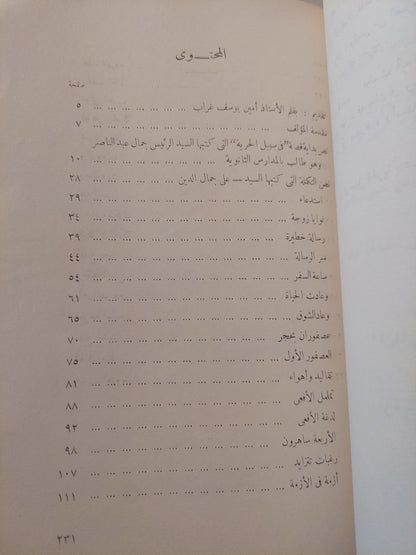 المحتــوى
صفحة
تقديم : بقلم الأستاذ أمين يوسف غراب ... ... ... ... ... ... ٥
مقدمة المؤلف ... ... ... ... ... ... ... ... ... ٧
نص بداية قصة "فى سبيل الحرية" التى كتبها السيد الرئيس جمال عبد الناصر
وهو طالب بالمدارس الثانوية ... ... ... ... ... ... ١٠
نص التكملة التى كتبها السيد — على جمال الدين ... ... ... ٢٨
استدعاء ... ... ... ... ... ... ... ... ... ٢٩
نوايا زوجة ... ... ... ... ... ... ... ... ... ٣٤
رسالة خطيرة ... ... ... ... ... ... ... ... ... ٣٩
سر الرسالة ... ... ... ... ... ... ... ... ... ٤٤
ساعة السفر ... ... ... ... ... ... ... ... ... ٥٤
وعادت الحياة ... ... ... ... ... ... ... ... ... ٦١
وعاد الشوق ... ... ... ... ... ... ... ... ... ٦٥
عصفوران بحجر ... ... ... ... ... ... ... ... ... ٧٠
العصفور الأول ... ... ... ... ... ... ... ... ... ٧٥
تقاليد وأهواء ... ... ... ... ... ... ... ... ... ٨١
تململ الأفعى ... ... ... ... ... ... ... ... ... ٨٨
لدغة الأفعى ... ... ... ... ... ... ... ... ... ٩٢
الأربعة ساهرون ... ... ... ... ... ... ... ... ... ٩٨
رغبات تتزايد ... ... ... ... ... ... ... ... ... ١٠٧
أزمة فى الأزمة ... ... ... ... ... ... ... ... ... ١١١
٢٣١